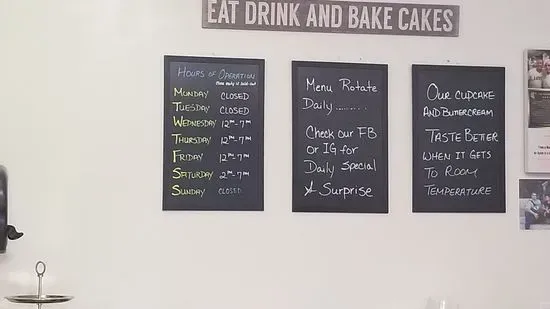 EAT DRINK AND BAKE CAKES
HOURS OF OPERATION
MONDAY CLOSED
TUESDAY CLOSED
WEDNESDAY 12PM-7PM
THURSDAY 12PM-7PM
FRIDAY 12PM-7PM
SATURDAY 2PM-7PM
SUNDAY CLOSED
Menu Rotate
Daily..........
Check our FB
or IG for
Daily Special
& Surprise
OUR CUPCAKE
AND BUTTERCREAM
TASTE BETTER
WHEN IT GETS
TO ROOM
TEMPERATURE